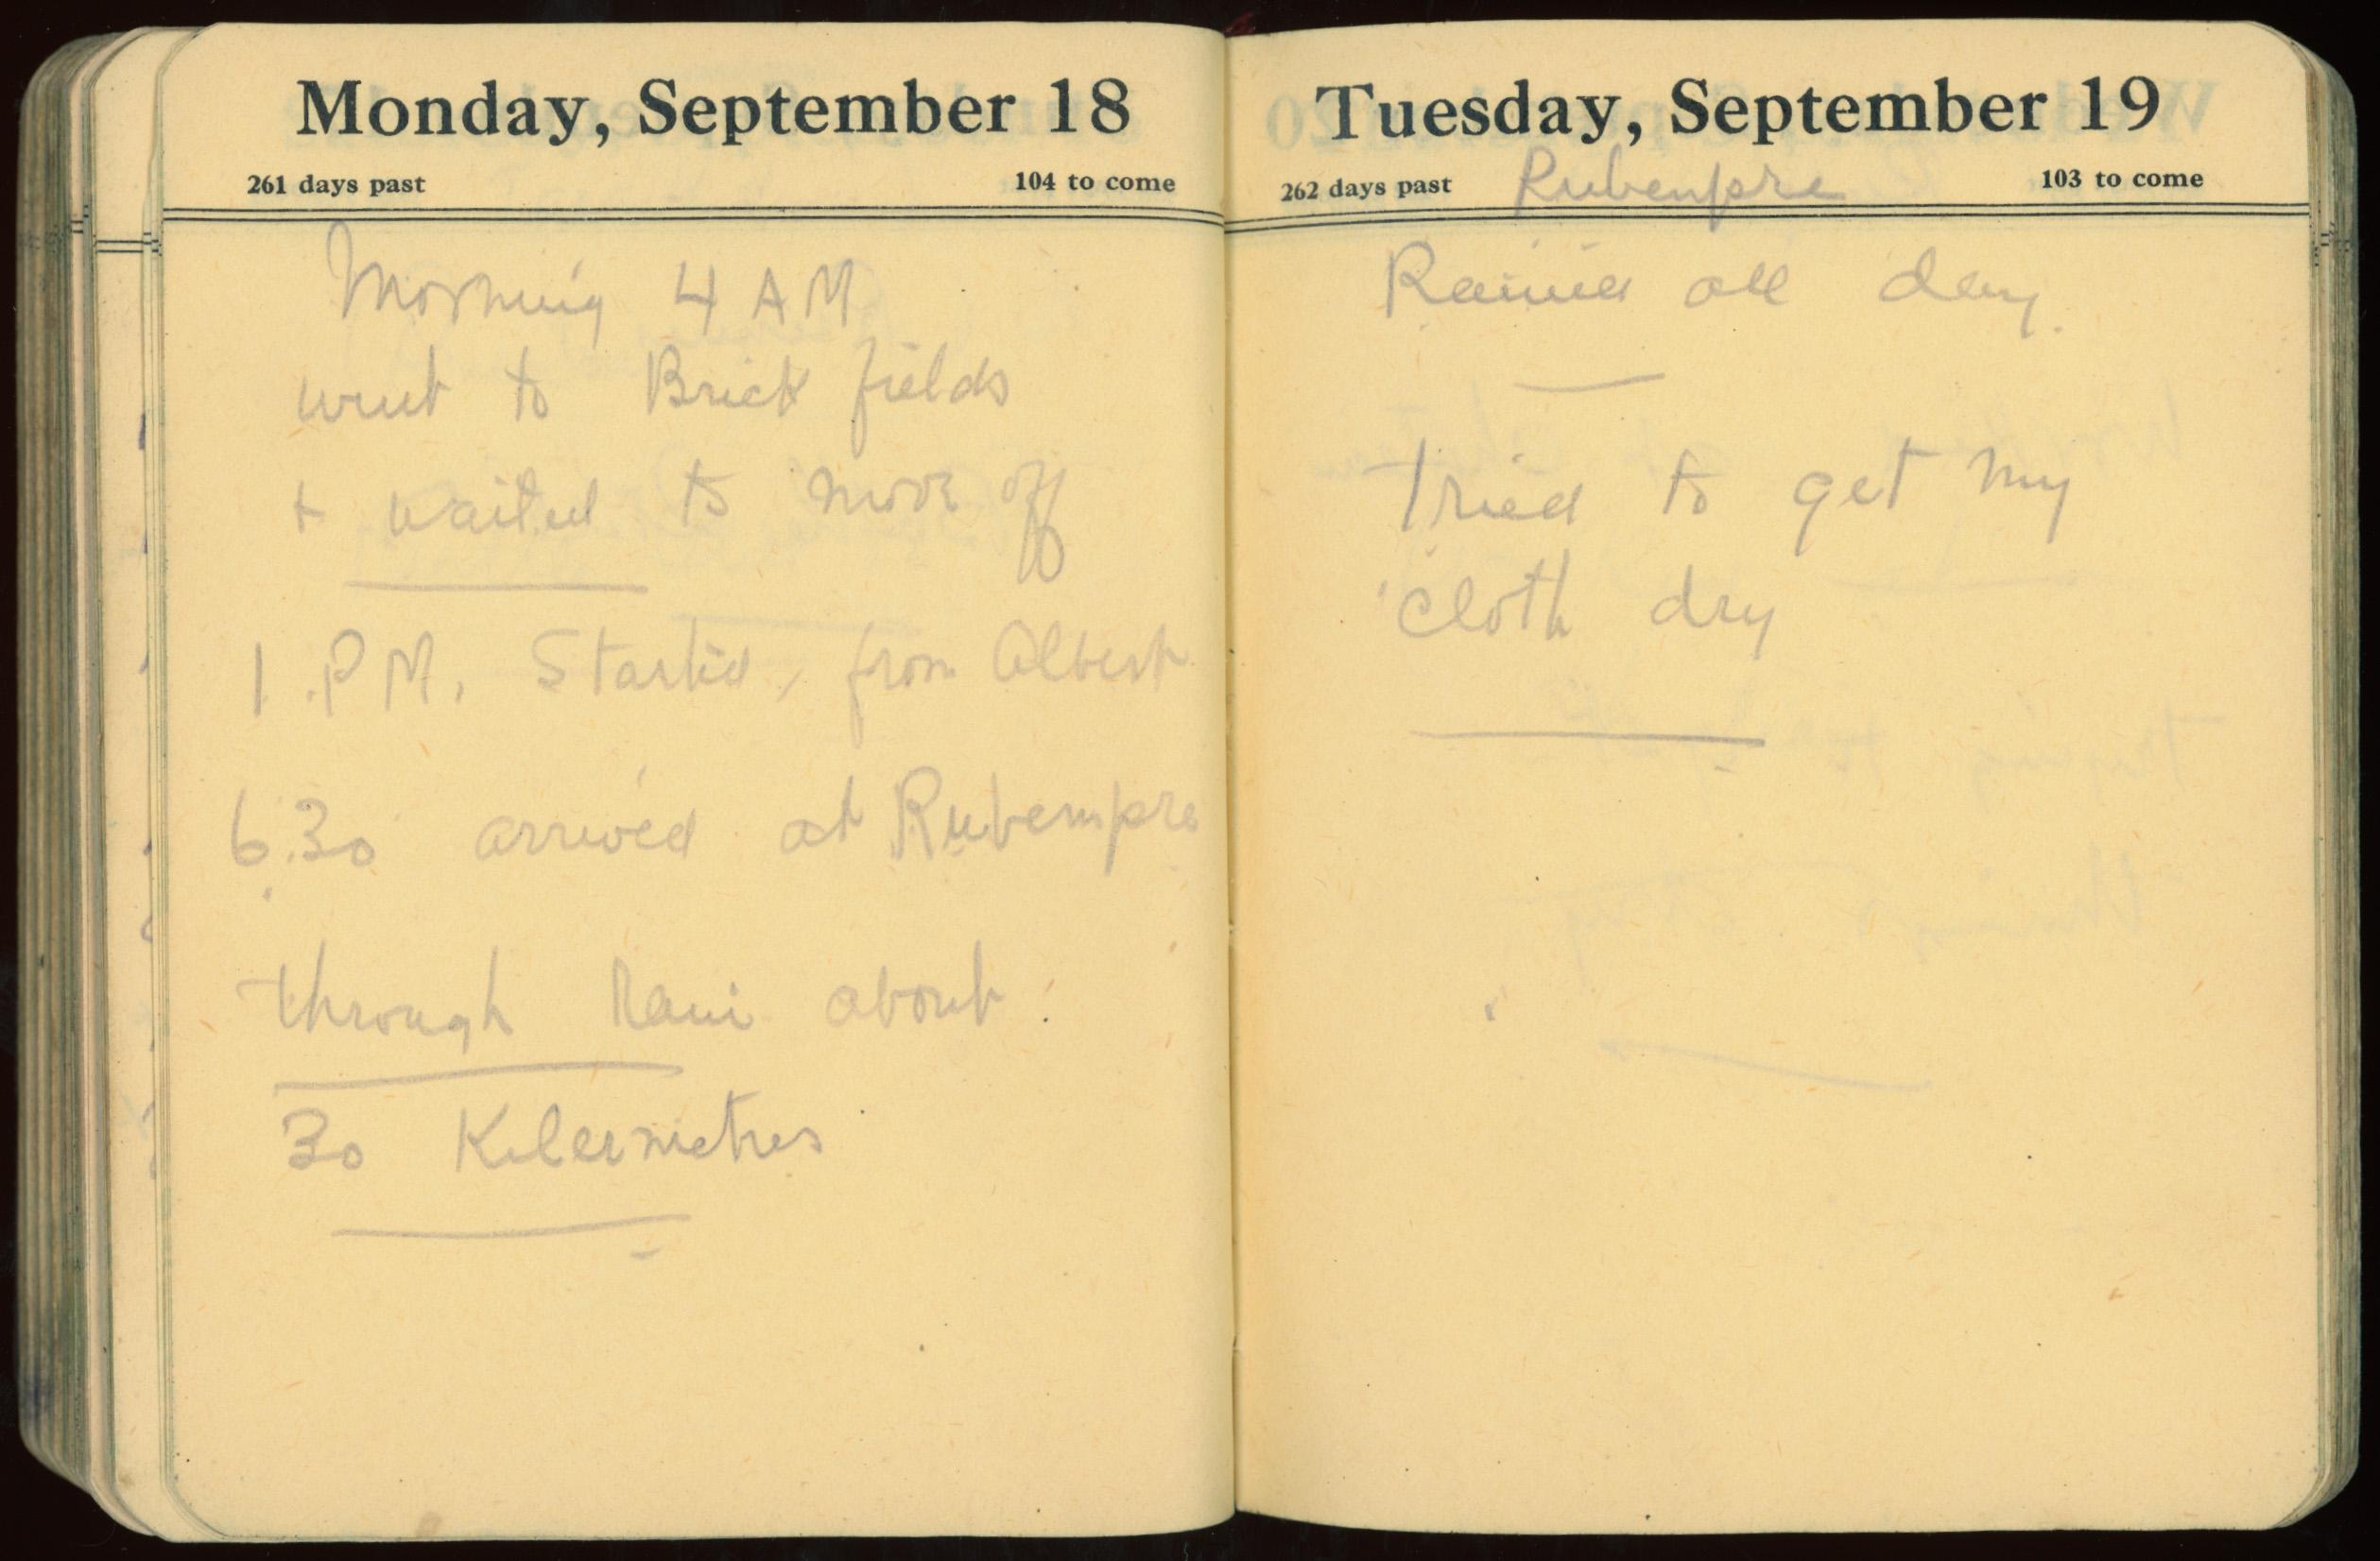 Monday, September 18
261 days past 104 to come
Morning 4 AM
went to Brick fields
+ waited to move off
1 .P M. Started, from Albert
6.30 arrived at Rubempre
through Rain about
30 Kilermetres
Tuesday, September 19
262 days past Rubenpre 103 to come
Rained all day.
Tried to get my
cloth dry